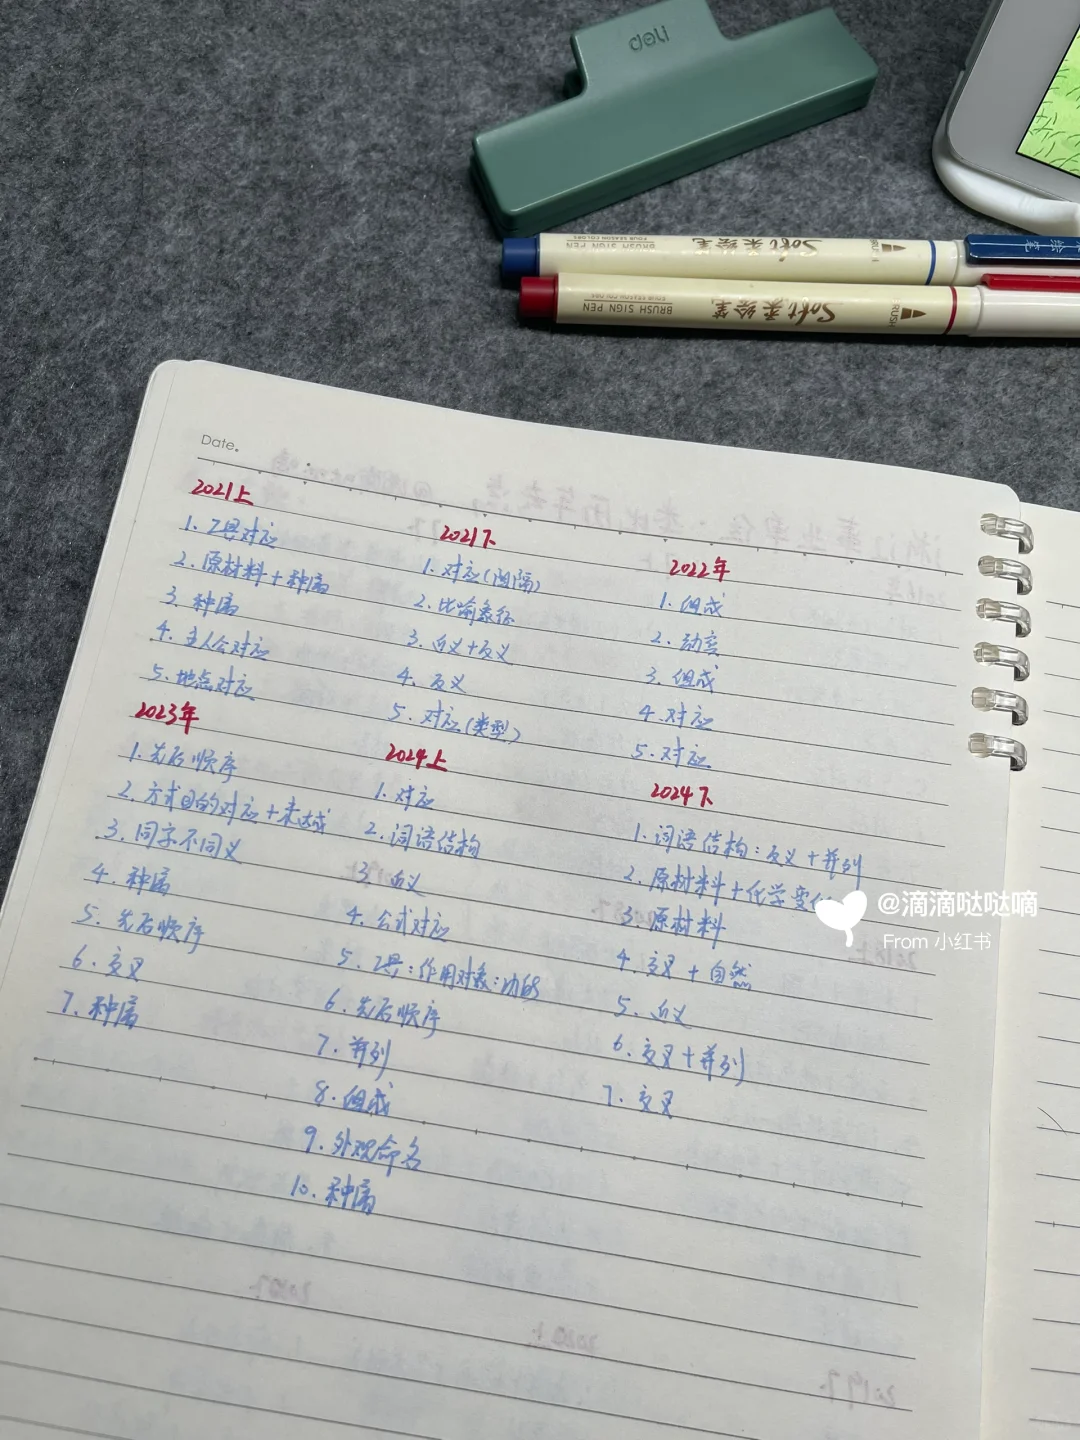 deli
BRUSH SIGN PEN
FOUR SEASON COLORS
Soft 柔绘笔
BRUSH SIGN PEN
FOUR SEASON COLORS
Soft 柔绘笔
Date.
2021上
1. 工具对应
2. 原材料+种属
3. 种属
4. 主人公对应
5. 地点对应
2021下
1. 对应(阻隔)
2. 比喻象征
3. 近义+反义
4. 反义
5. 对应(类型)
2022年
1. 组成
2. 动宾
3. 组成
4. 对应
5. 对应
2023年
1. 先后顺序
2. 方式目的对应+未达成
3. 同字不同义
4. 种属
5. 先后顺序
6. 交叉
7. 种属
2024上
1. 对应
2. 词语结构
3. 近义
4. 公式对应
5. 工具:作用对象:功能
6. 先后顺序
7. 并列
8. 组成
9. 外观命名
10. 种属
2024下
1. 词语结构:反义+并列
2. 原材料+化学变化
3. 原材料
4. 交叉+自然
5. 近义
6. 交叉+并列
7. 交叉
@滴滴哒哒嘀
From 小红书